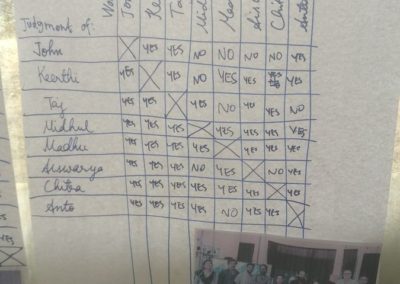 Judgment of:
John YES YES NO NO NO NO YES
Keerthi YES YES NO YES YES YES YES
Taj YES YES YES NO YES YES NO
Nidhul YES YES YES YES YES YES YES
Madhu YES YES YES YES YES YES YES
Aiswarya YES YES YES NO YES NO YES
Chitra YES YES YES YES YES YES YES
Anto YES YES YES YES NO YES YES